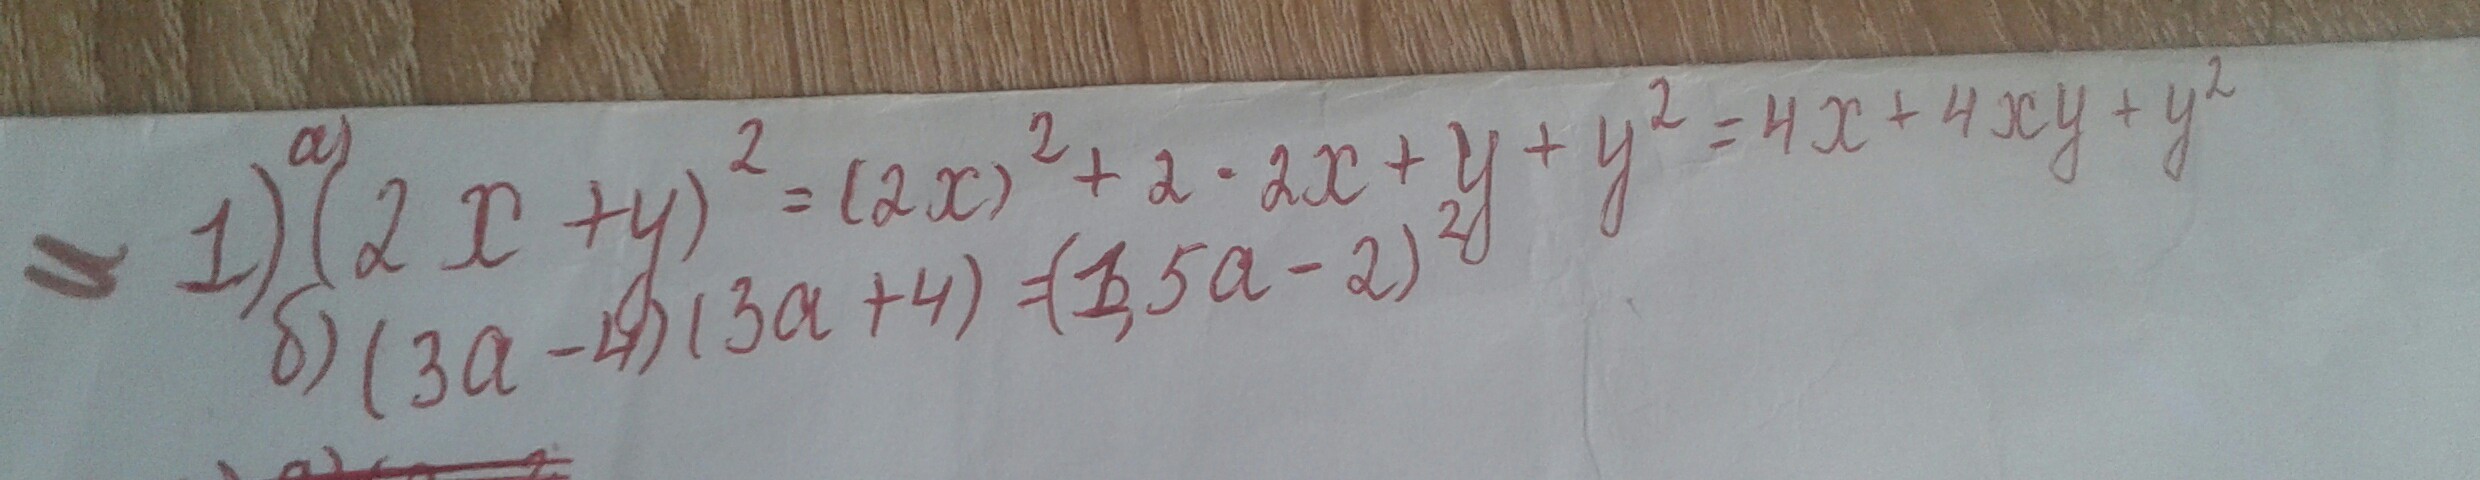 = 1) а) (2x + y)² = (2x)² + 2 · 2x + y + y² = 4x + 4xy + y²
б) (3a - 4) (3a + 4) = (1,5a - 2)²